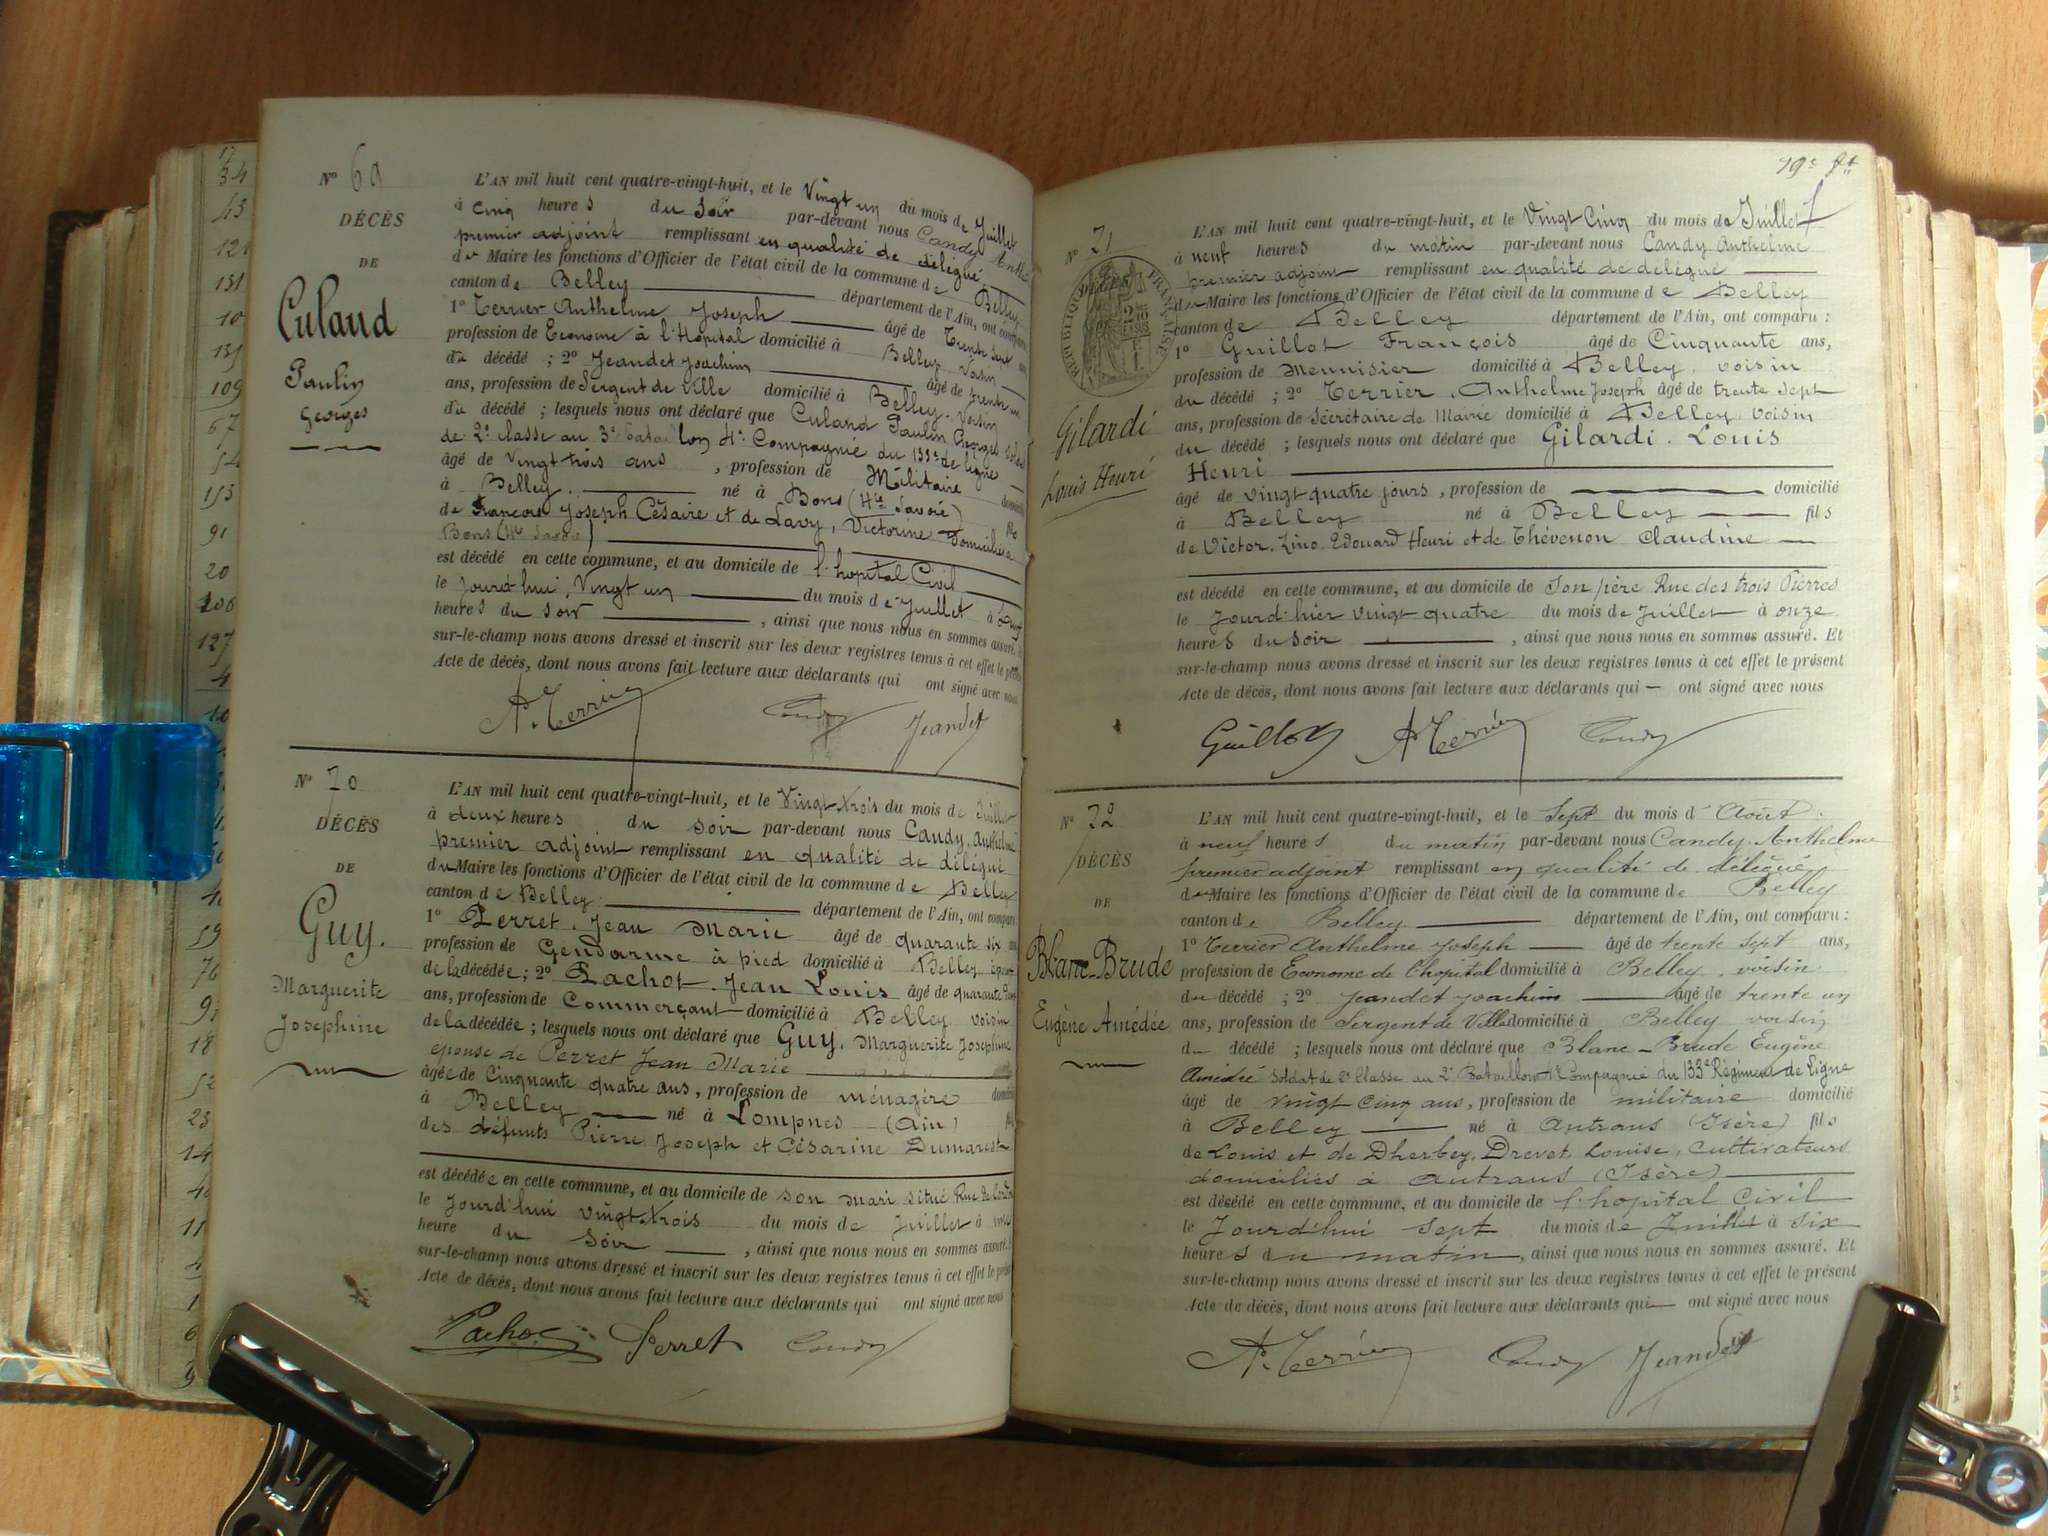 N° 69
DÉCÈS
DE
Culand
Paulin
Georges
L'AN mil huit cent quatre-vingt-huit, et le Vingt un du mois de Juillet
à cinq heures du soir par-devant nous Candy Anthe
premier adjoint remplissant en qualité de délégué
du Maire les fonctions d'Officier de l'état civil de la commune de Belley
canton de Belley département de l'Ain, ont comparu
1° Terrier Anthelme Joseph âgé de Trente sept
profession de Econome à l'Hopital domicilié à Belley, Voisin
du décédé ; 2° Jeandet Joachim âgé de trente un
ans, profession de Sergent de Ville domicilié à Belley. Voisin
du décédé ; lesquels nous ont déclaré que Culand Paulin Georges Soldat
de 2e classe au 3e bataillon 4e Compagnie du 133e de ligne
âgé de Vingt trois ans , profession de Militaire domicilié
à Belley. né à Bons (Hte Savoie) fils
de François Joseph Césaire et de Lavy, Victorine Domiciliés à
Bons (Hte Savoie)
est décédé en cette commune, et au domicile de l'hopital Civil
le Jourd'hui, Vingt un du mois de Juillet à
heures du soir , ainsi que nous nous en sommes assuré.
sur-le-champ nous avons dressé et inscrit sur les deux registres tenus à cet effet le
Acte de décès, dont nous avons fait lecture aux déclarants qui ont signé avec nous
A. Terrier Candy Jeandet
N° 70
DÉCÈS
DE
Guy.
Marguerite
Josephine
L'AN mil huit cent quatre-vingt-huit, et le Vingt trois du mois de Juillet
à deux heures du soir par-devant nous Candy, Anthelme
premier adjoint remplissant en qualité de délégué
du Maire les fonctions d'Officier de l'état civil de la commune de Belley
canton de Belley. département de l'Ain, ont comparu
1° Perret. Jean Marie âgé de quarante six
profession de Gendarme à pied domicilié à Belley époux
de la décédée ; 2° Pachot. Jean Louis âgé de quarante
ans, profession de Commerçant domicilié à Belley voisin
de la décédée ; lesquels nous ont déclaré que Guy. Marguerite Josephine
epouse de Perret Jean Marie
âgée de Cinquante quatre ans, profession de ménagère domicilié
à Belley né à Lompnes (Ain)
des défunts Pierre Joseph et Césarine Dumarest
est décédée en cette commune, et au domicile de son mari situé Rue de
le Jourd'hui vingt trois du mois de Juillet à une
heure du Soir , ainsi que nous nous en sommes assuré.
sur-le-champ nous avons dressé et inscrit sur les deux registres tenus à cet effet le
Acte de décès, dont nous avons fait lecture aux déclarants qui ont signé avec nous
Pachot Perret Candy
N° 71
DÉCÈS
Gilardi
Louis Henri
L'AN mil huit cent quatre-vingt-huit, et le Vingt Cinq du mois de Juillet
à neuf heures du matin par-devant nous Candy Anthelme
premier adjoint remplissant en qualité de délégué
du Maire les fonctions d'Officier de l'état civil de la commune de Belley
canton de Belley département de l'Ain, ont comparu :
1° Guillot François âgé de Cinquante ans,
profession de Menuisier domicilié à Belley, voisin
du décédé ; 2° Terrier, Anthelme Joseph âgé de trente sept
ans, profession de Sécrétaire de Mairie domicilié à Belley voisin
du décédé ; lesquels nous ont déclaré que Gilardi. Louis
Henri
âgé de vingt quatre jours , profession de domicilié
à Belley né à Belley fils
de Victor. Lino. Edouard Henri et de Thévenon Claudine
est décédé en cette commune, et au domicile de Son père Rue des trois Pierres
le Jourd'hier vingt quatre du mois de Juillet à onze
heures du soir , ainsi que nous nous en sommes assuré. Et
sur-le-champ nous avons dressé et inscrit sur les deux registres tenus à cet effet le présent
Acte de décès, dont nous avons fait lecture aux déclarants qui ont signé avec nous
Guillot A. Terrier Candy
N° 72
DÉCÈS
DE
Blanc-Brude
Eugène Amédée
L'AN mil huit cent quatre-vingt-huit, et le Sept du mois d'Août.
à neuf heures du matin par-devant nous Candy Anthelme
premier adjoint remplissant en qualité de délégué
du Maire les fonctions d'Officier de l'état civil de la commune de Belley
canton de Belley département de l'Ain, ont comparu :
1° Terrier Anthelme Joseph âgé de trente sept ans,
profession de Econome de l'hopital domicilié à Belley, voisin
du décédé ; 2° Jeandet Joachim âgé de trente un
ans, profession de Sergent de Ville domicilié à Belley voisin
du décédé ; lesquels nous ont déclaré que Blanc-Brude Eugène
Amédée Soldat de 2e Classe au 2e Bataillon 1e Compagnie du 133e Régiment de Ligne
âgé de vingt cinq ans, profession de militaire domicilié
à Belley né à Autrans (Isère) fils
de Louis et de Dherbey. Drevet Louise, cultivateurs
domiciliés à Autrans (Isère)
est décédé en cette commune, et au domicile de l'hopital Civil
le Jourd'hui sept du mois de Juillet à six
heures du matin , ainsi que nous nous en sommes assuré. Et
sur-le-champ nous avons dressé et inscrit sur les deux registres tenus à cet effet le présent
Acte de décès, dont nous avons fait lecture aux déclarants qui ont signé avec nous
A. Terrier Candy Jeandet